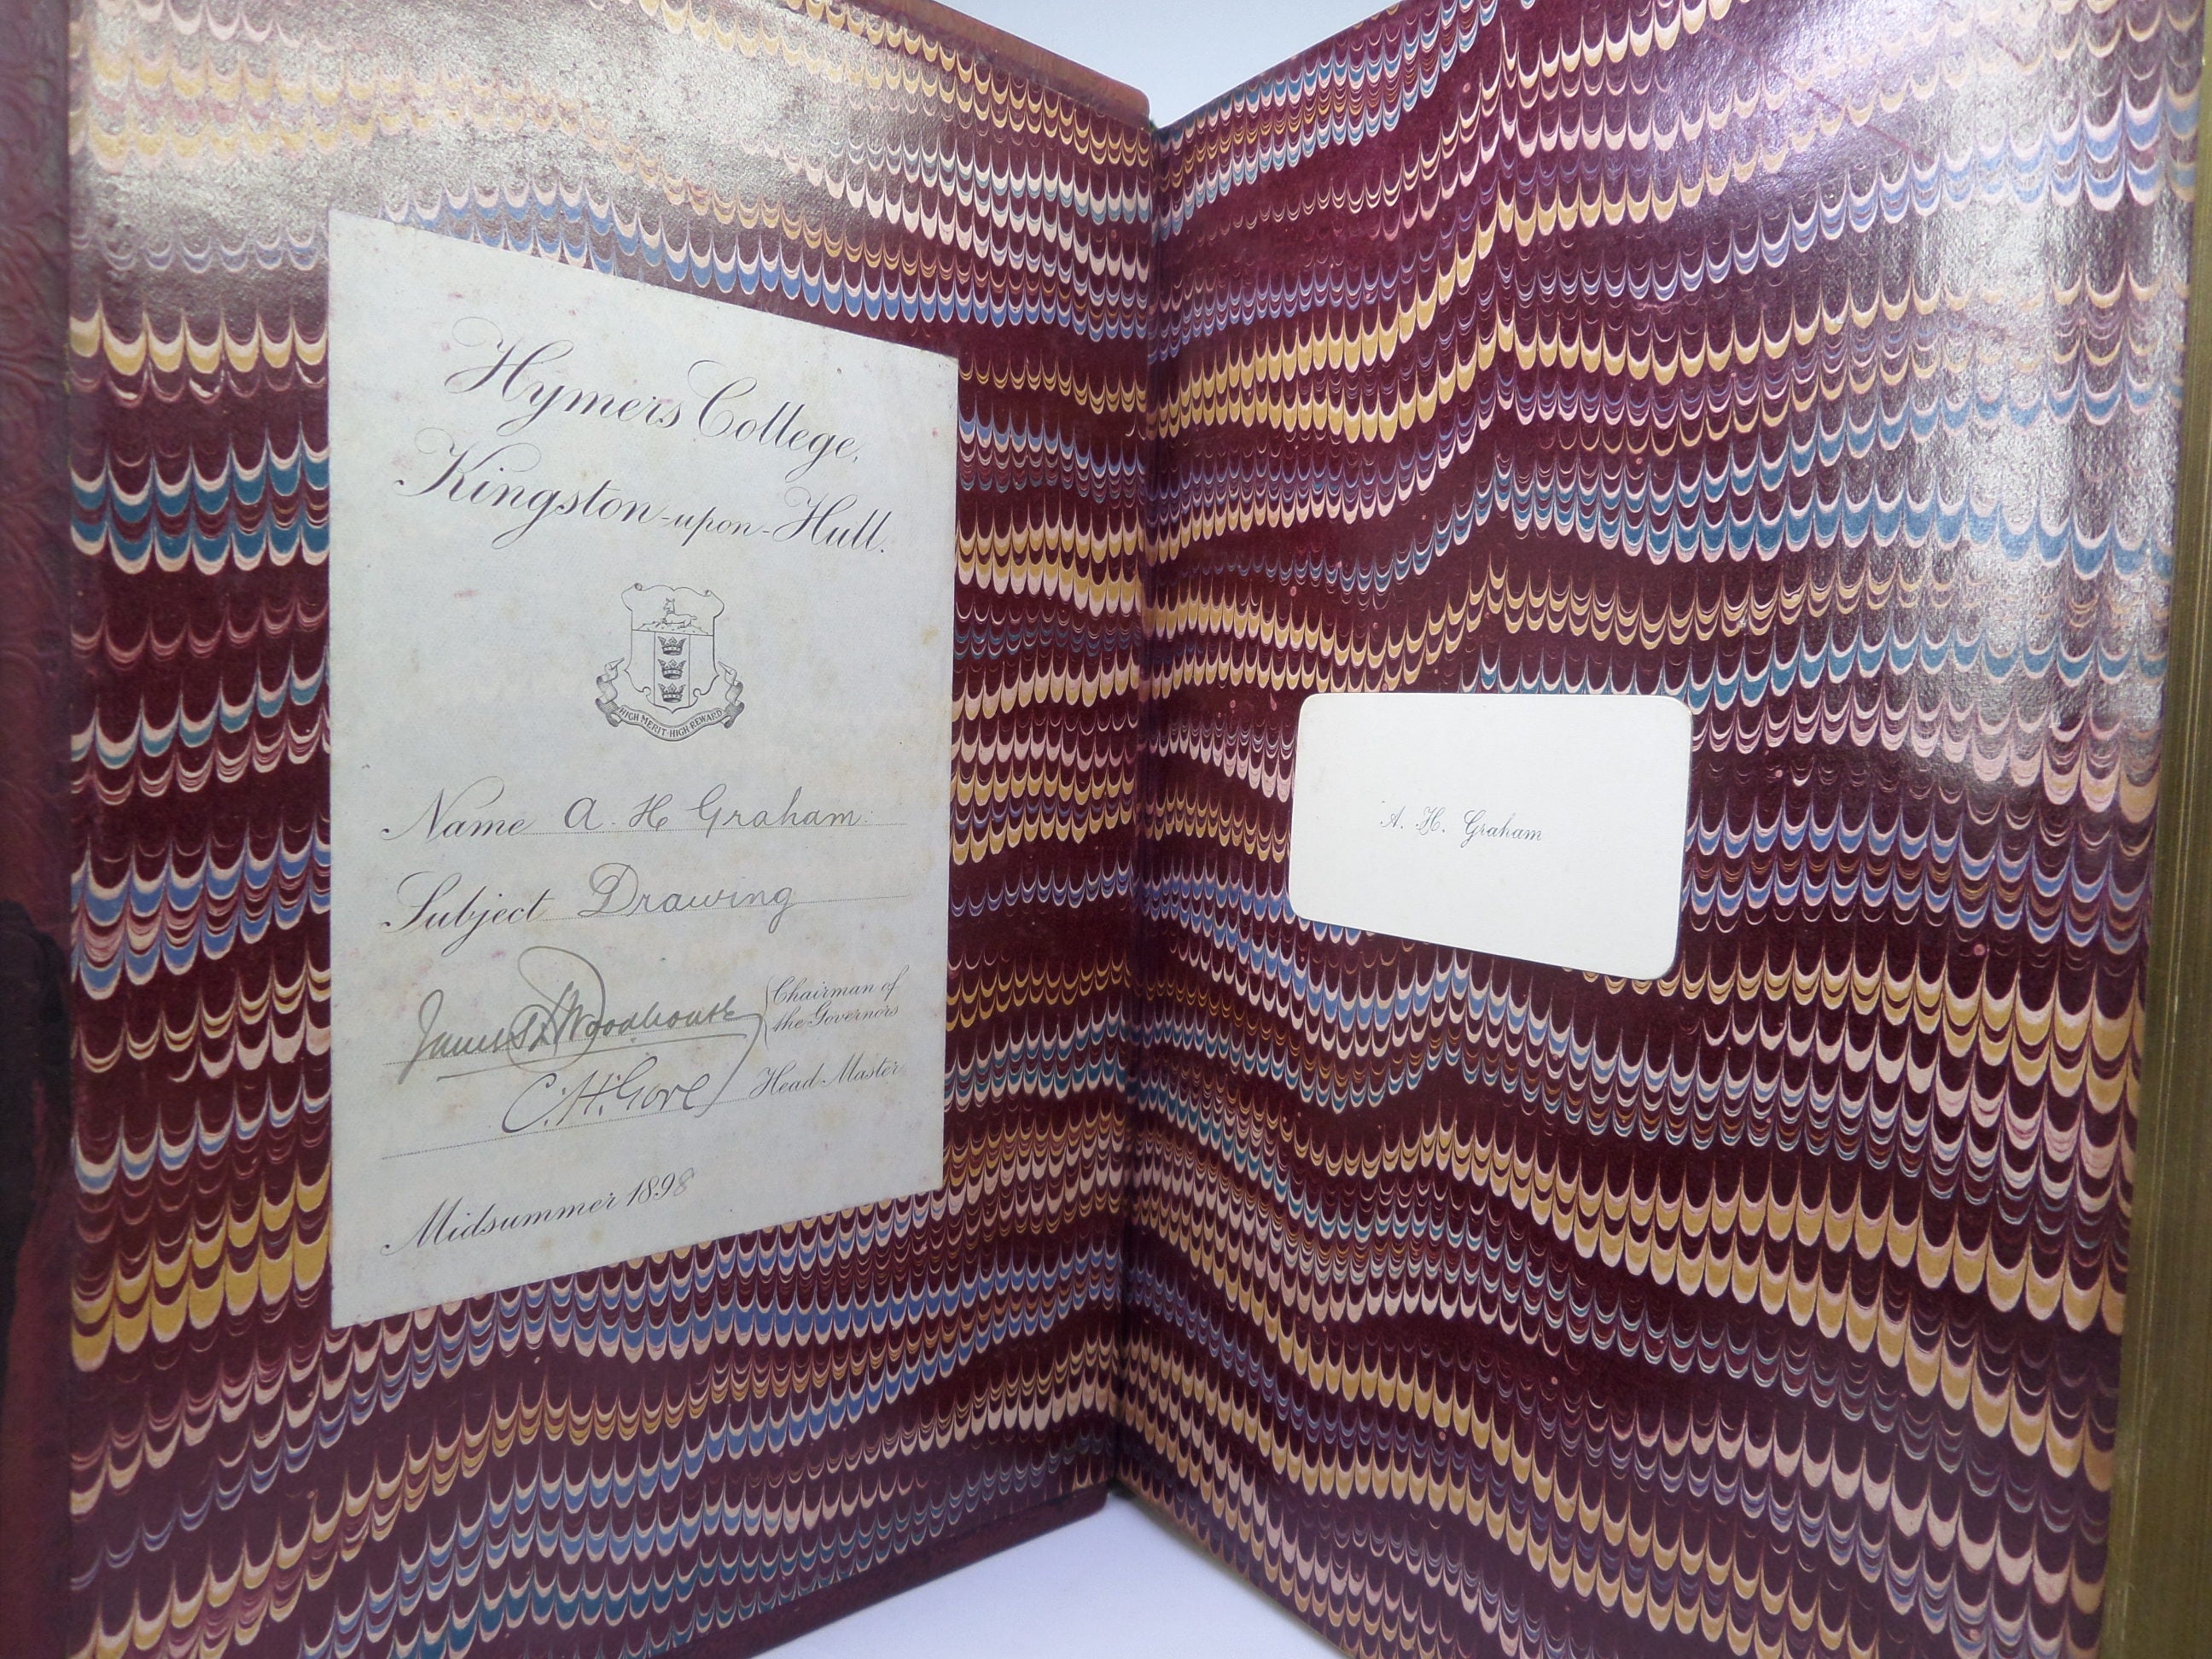 Hymers College,
Kingston-upon-Hull.
HIGH MERIT HIGH REWARD
Name A. H Graham.
Subject Drawing
Chairman of
the Governors
Woodhouse
C. H. Gore Head Master
Midsummer 1898
A. H. Graham